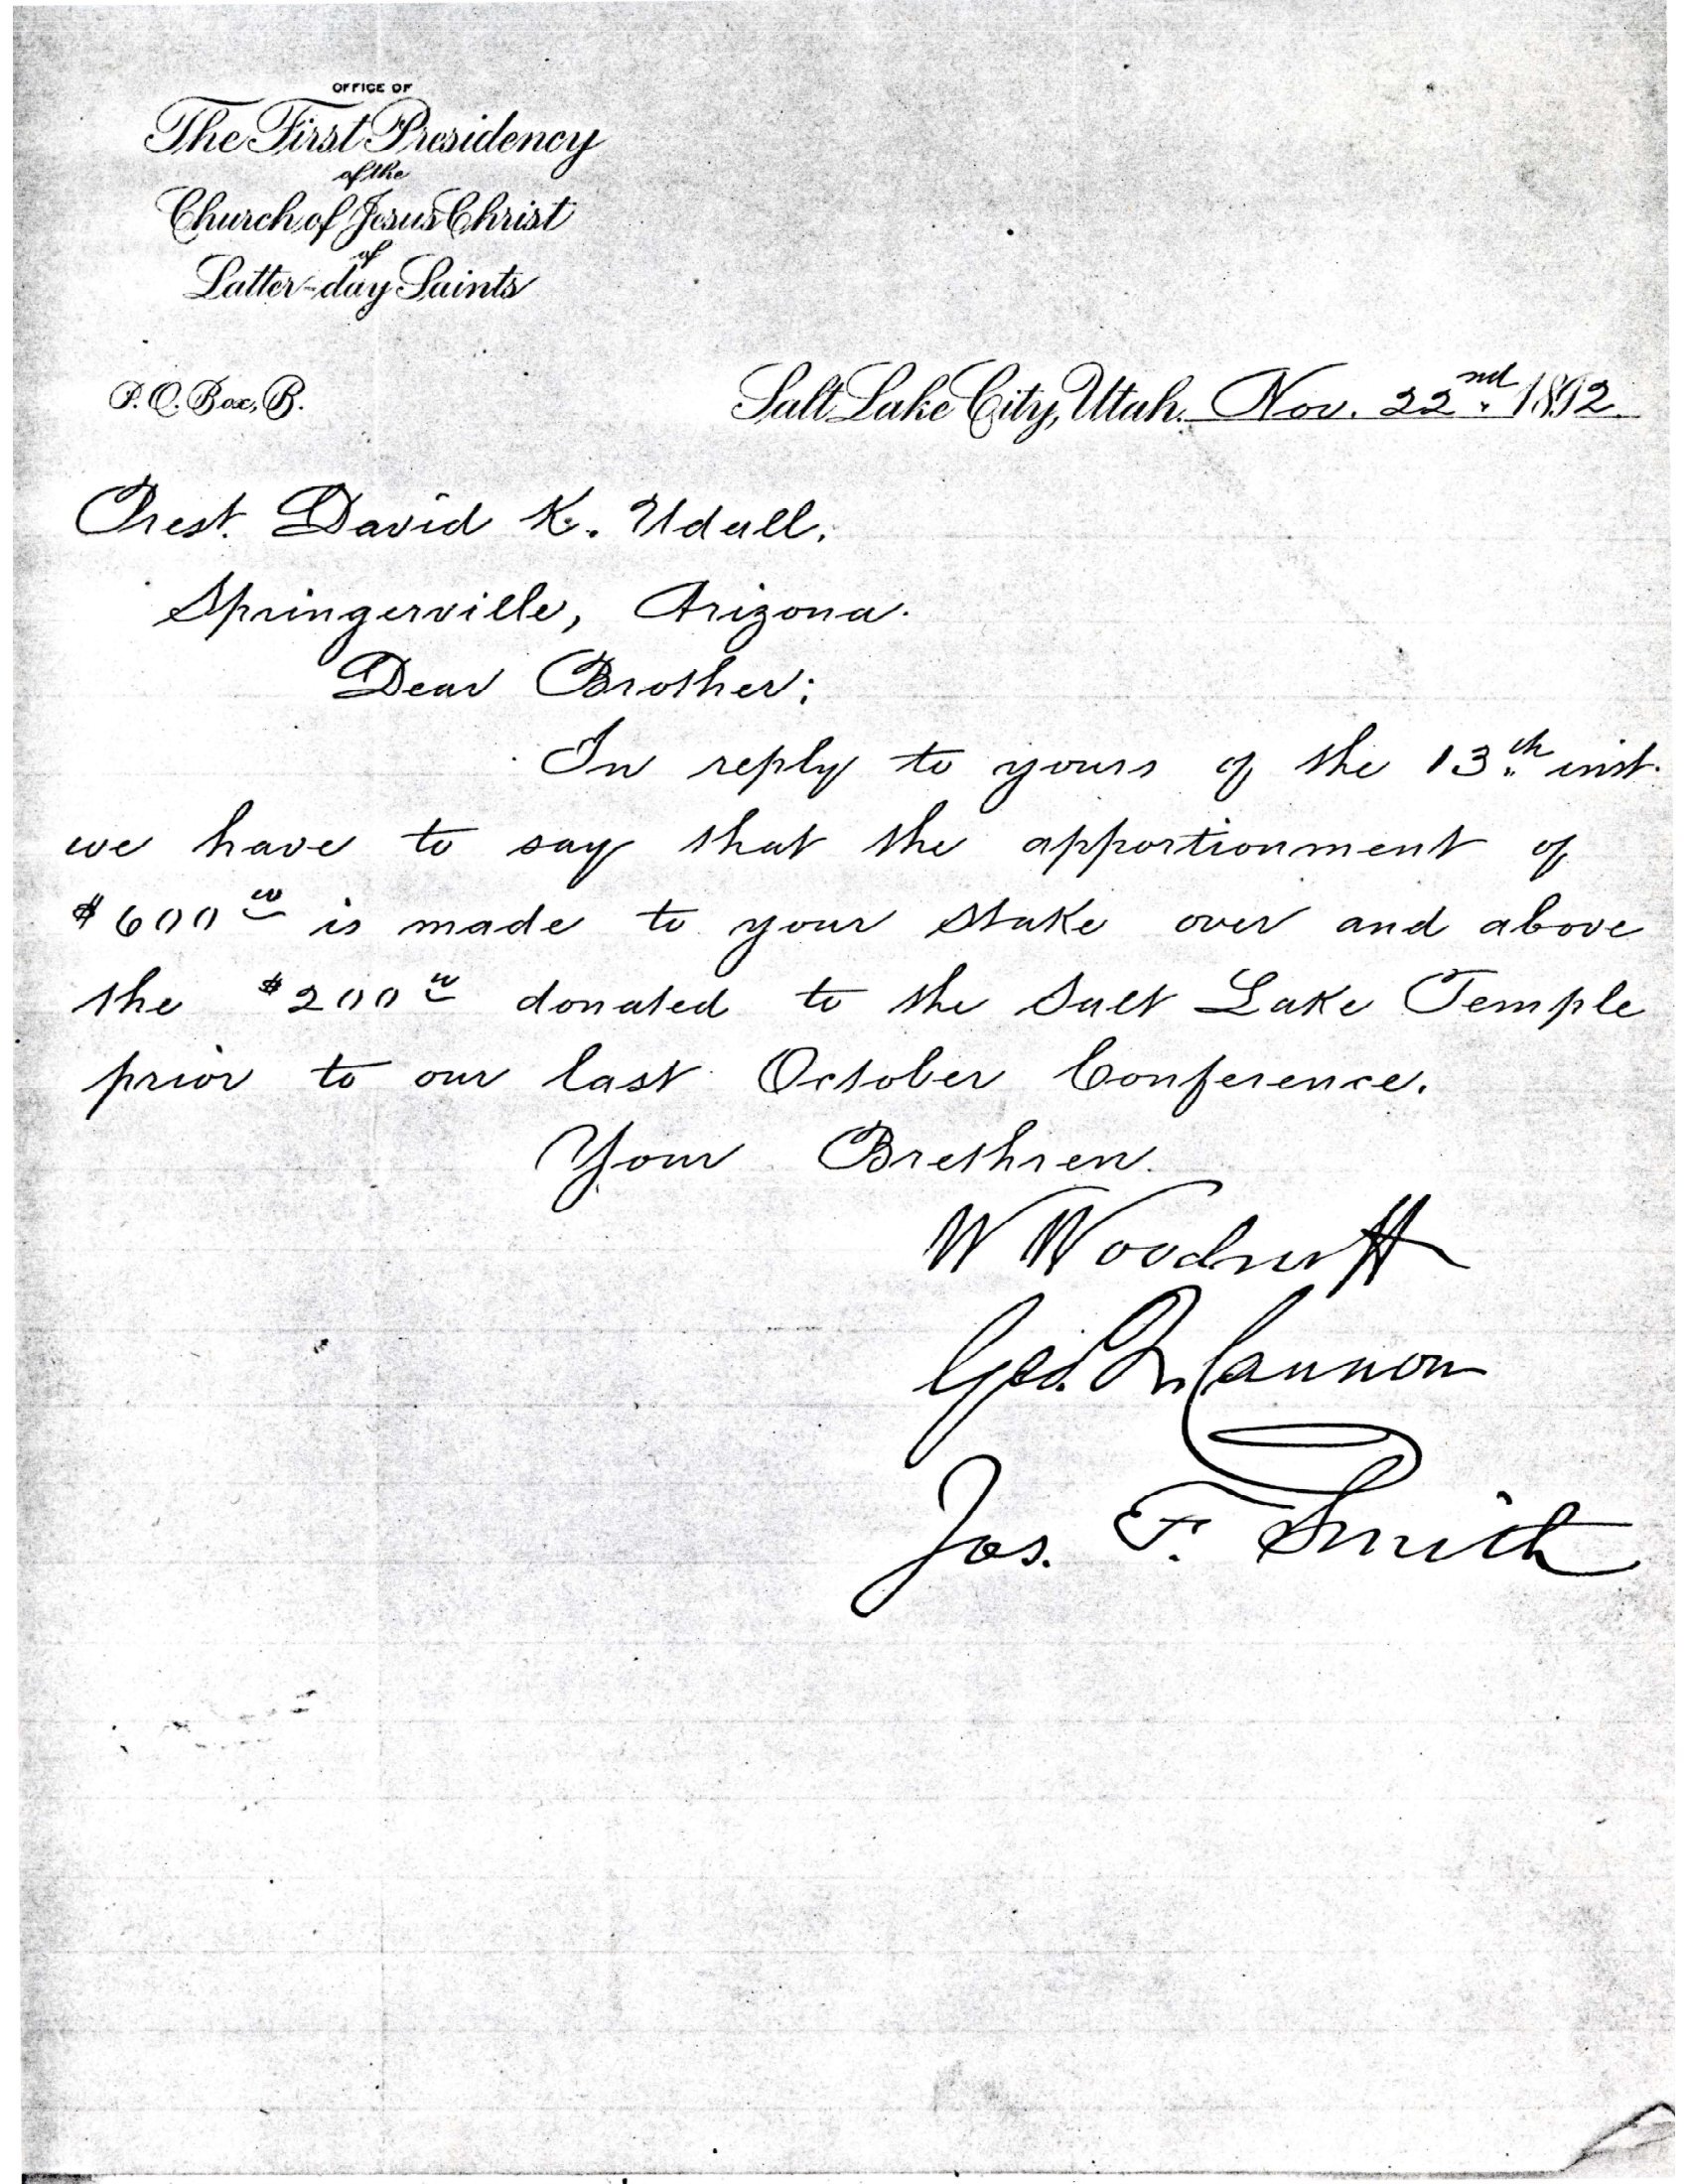 OFFICE OF
The First Presidency
of the
Church of Jesus Christ
of
Latter-day Saints
P.O. Box, B.
Salt Lake City, Utah. Nov. 22nd. 1892.
Prest. David K. Udall,
Springerville, Arizona.
Dear Brother;
In reply to yours of the 13th inst.
we have to say that the apportionment of
$600 00 is made to your Stake over and above
the $200 00 donated to the Salt Lake Temple
prior to our last October Conference.
Your Brethren.
W Woodruff
Geo. Q. Cannon
Jos. F. Smith